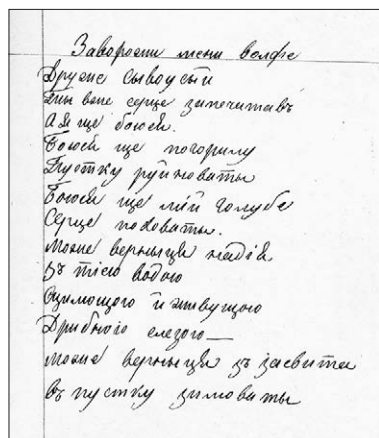 Заворожи мени волфе
Друже сывоусый
Ты вже серце запечатавъ
А я ще боюся.
Боюся ще погорилу
Пустку руйноваты
Боюся ще мій голубе
Серце поховаты.
Може вернецця надія
Зъ тією водою
Цилющою й живущою
Дрибною слезою —
Може вернецця зъ засвита
въ пустку зимоваты